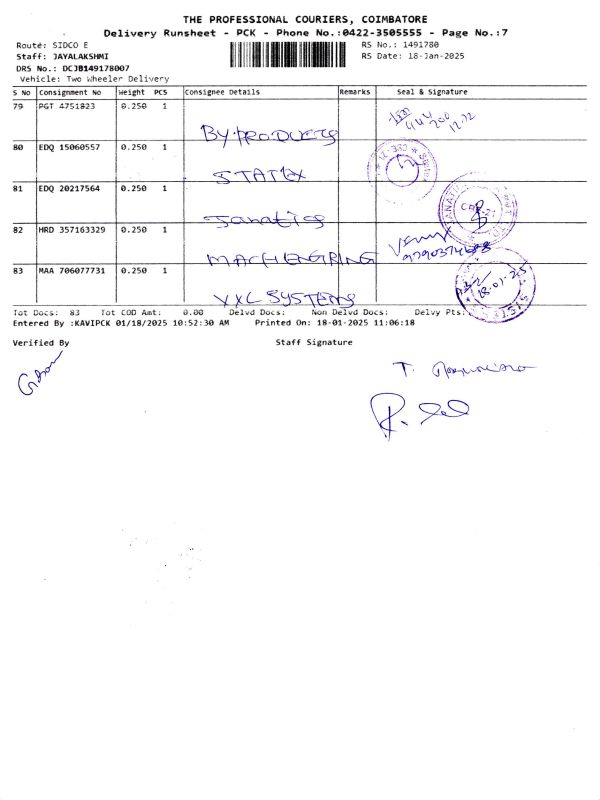 THE PROFESSIONAL COURIERS, COIMBATORE
Delivery Runsheet - PCK - Phone No.:0422-3505555 - Page No.:7
Route: SIDCO E
RS No.: 1491780
Staff: JAYALAKSHMI
RS Date: 18-Jan-2025
DRS No.: DCJB149178007
Vehicle: Two Wheeler Delivery
S No Consignment No Weight PCS Consignee Details Remarks Seal & Signature
79 PGT 4751823 0.250 1
BY-PRODUCTS
80 EDQ 15060557 0.250 1
STATEX
81 EDQ 20217564 0.250 1
Janatics
82 HRD 357163329 0.250 1
MACHENGIRING
83 MAA 706077731 0.250 1
VXL SYSTEMS
18-01-25
Tot Docs: 83 Tot COD Amt: 0.00 Delvd Docs: Non Delvd Docs: Delvy Pts:
Entered By :KAVIPCK 01/18/2025 10:52:30 AM Printed On: 18-01-2025 11:06:18
Verified By Staff Signature